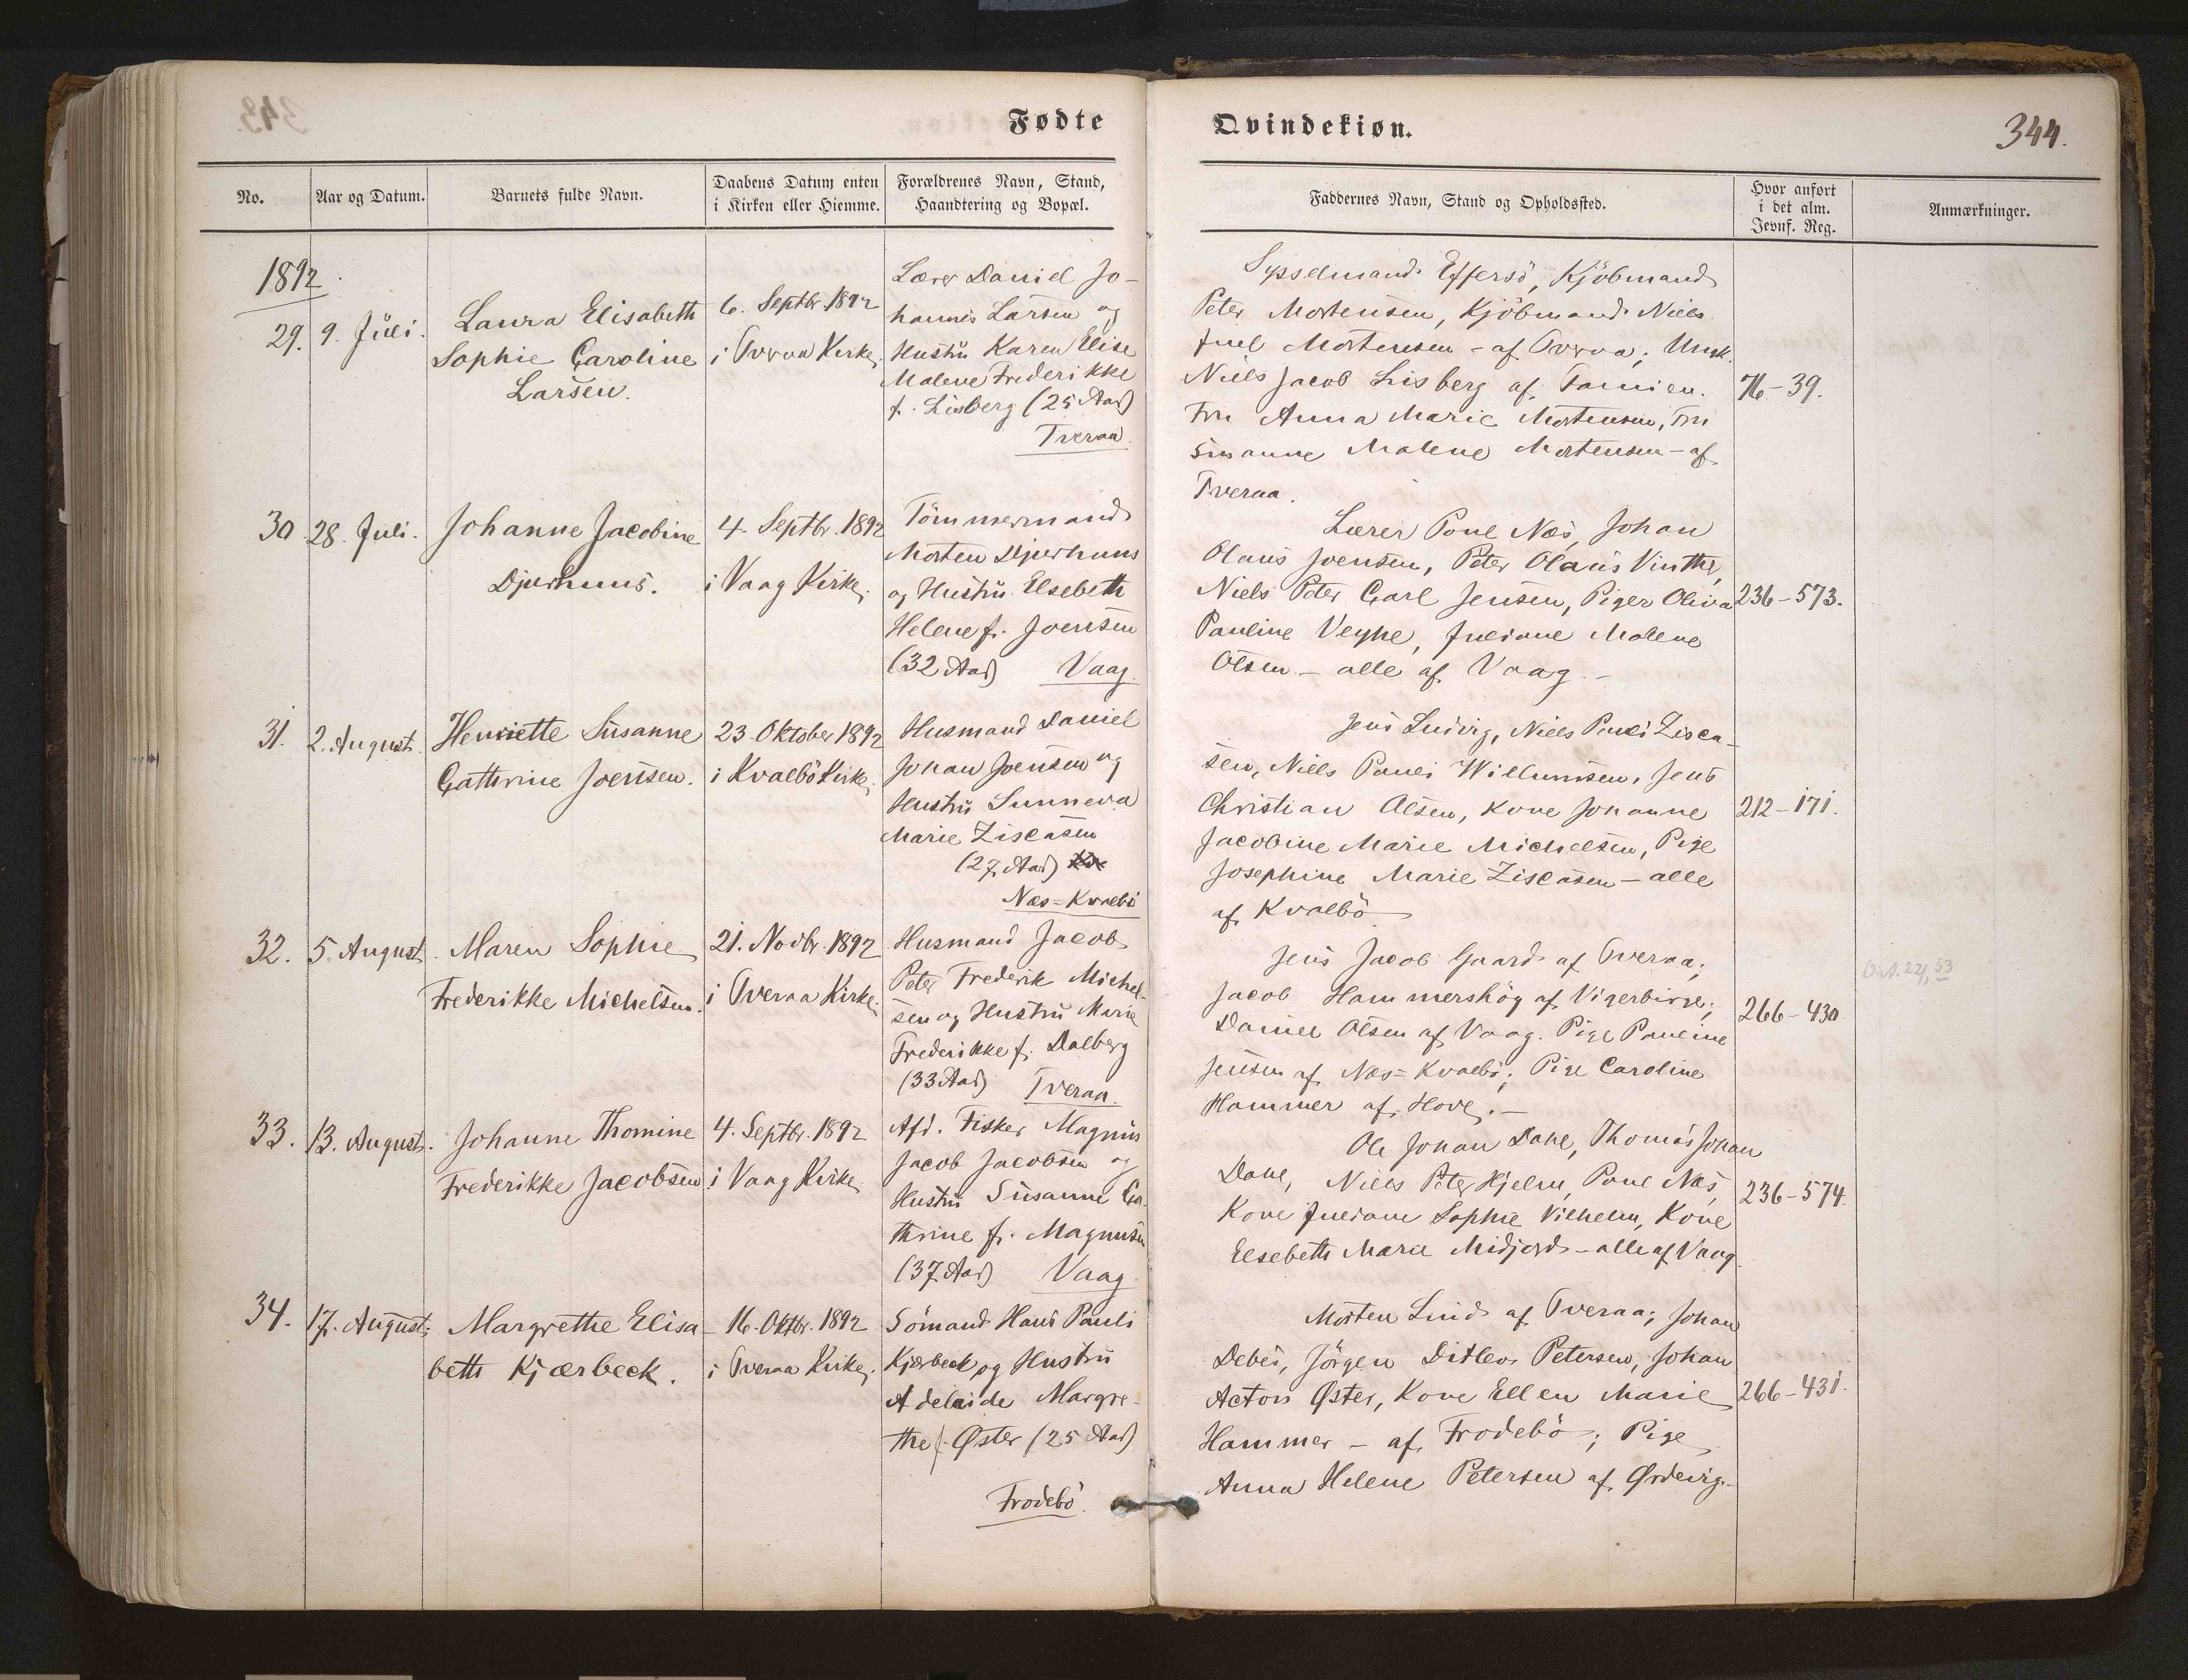 Fødte
Qvindekiøn.
344.
No.
Aar og Datum.
Barnets fulde Navn.
Daabens Datum enten
i Kirken eller Hiemme.
Forældrenes Navn, Stand,
Haandtering og Bopæl.
Faddernes Navn, Stand og Opholdssted.
Hvor anført
i det alm.
Jevnf. Reg.
Anmærkninger.
1892
29.
9. Juli.
Laura Elisabeth
Sophie Caroline
Larsen.
6. Septbr. 1892
i Tveraa Kirke.
Lærer Daniel Jo-
hannes Larsen og
Hustru Karen Elise
Malene Frederikke
f. Lisberg (25 Aar)
Tveraa.
Sysselmand Effersö, Kjöbmand
Peter Mortensen, Kjöbmand Niels
Juel Mortensen - af Tveraa; Ungk.
Niels Jacob Lisberg af Famien.
Fru Anna Marie Mortensen, Fru
Susanne Malene Mortensen - af
Tveraa.
76-39.
30.
28. Juli.
Johanne Jacobine
Djurhuus.
4. Septbr. 1892
i Vaag Kirke.
Tömmermand
Morten Djurhuus
og Hustru Elsebeth
Helene f. Joensen
(32 Aar) Vaag.
Lærer Poul Næs, Johan
Olaus Joensen, Peter Olaus Vinther,
Niels Peter Carl Jensen, Piger Oliva
Pauline Veyhe, Juliane Malene
Olsen - alle af Vaag.-
236-573.
31.
2. August.
Henriette Susanne
Cathrine Joensen.
23. Oktober 1892
i Kvalbö Kirke.
Husmand Daniel
Johan Joensen og
Hustru Sunneva
Marie Ziscasen
(27 Aar)
Næs-Kvalbö
Jens Ludvig, Niels Pauli Zisca-
sen, Niels Pauli Willumsen, Jens
Christian Olsen, Kone Johanne
Jacobine Marie Michelsen, Pige
Josephine Marie Ziscasen - alle
af Kvalbö
212-171.
32.
5. August.
Maren Sophie
Frederikke Michelsen.
21. Novbr. 1892
i Tveraa Kirke.
Husmand Jacob
Peter Frederik Michel-
sen og Hustru Marie
Frederikke f. Dalberg
(33 Aar) Tveraa.
Jens Jacob Gaard af Tveraa;
Jacob Hammershög af Vigerbirge;
Daniel Olsen af Vaag. Pige Pauline
Jensen af Næs-Kvalbö; Pige Caroline
Hammer af Hove.-
266-430
D.A. 221, 53
33.
13. August.
Johanne Thomine
Frederikke Jacobsen
4. Septbr. 1892
i Vaag Kirke
Afd. Fisker Magnus
Jacob Jacobsen og
Hustru Susanne Ca-
thrine f. Magnusen
(37 Aar) Vaag
Ole Johan Dahl, Thomas Johan
Dahl, Niels Peter Hjelm, Poul Næs,
Kone Juliane Sophie Vilhelm, Kone
Elsebeth Marie Midjord - alle af Vaag.
236-574.
34.
17. August.
Margrethe Elisa-
beth Kjærbeck.
16. Oktbr. 1892
i Tveraa Kirke.
Sömand Hans Pauli
Kjærbeck og Hustru
Adelaide Margre-
the f. Øster (25 Aar)
Frodebö.
Morten Lind af Tveraa; Johan
Debes, Jörgen Ditlev Petersen, Johan
Acton Øster, Kone Ellen Marie
Hammer - af Frodebö; Pige
Anna Helene Petersen af Ördevig.-
266-431.